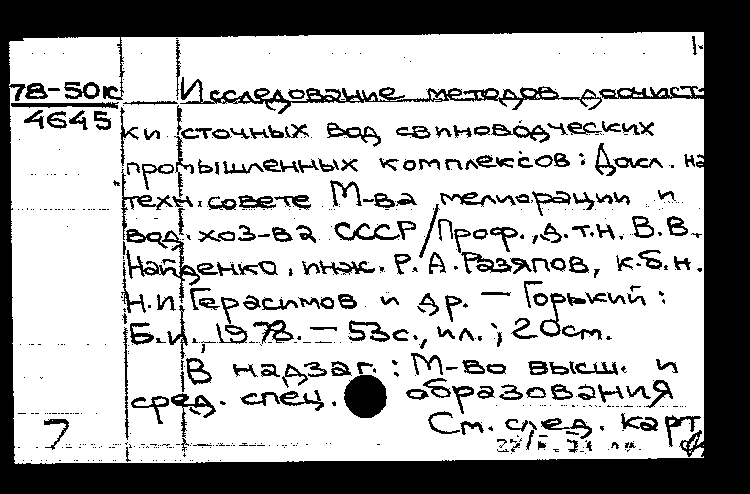 78-50к
4645
Исследование методов доочист-
ки сточных вод свиноводческих
промышленных комплексов: Докл. на
техн. совете М-ва мелиорации и
вод. хоз-ва СССР / Проф., д.т.н. В.В.
Найденко, инж. Р.А. Разяпов, к.б.н.
Н.И. Герасимов и др. — Горький:
Б.и., 1978. — 53с., ил.; 20см.
В надзаг.: М-во высш. и
сред. спец. образования
См. след. карт
7